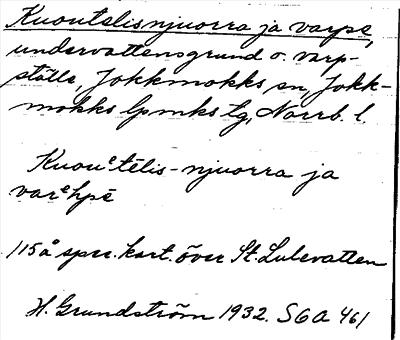 Kuoutelisnjuorra ja varpe,
undervattensgrund o. varp-
ställe, Jokkmokks sn, Jokk-
mokks lpmks tg, Norrb. l.
Kuouᵉtēlis-njuorra ja
varᵉhpē
115å spec. kart. över St. Lulevatten
H. Grundström 1932. SGA 461